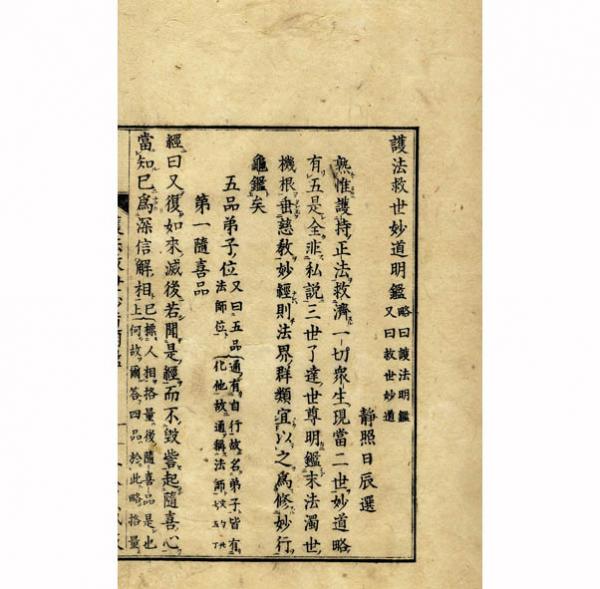 護法救世妙道明鑑 略曰護法明鑑
又曰救世妙道
靜照日辰選
熟惟護持正法救濟一切衆生現當二世妙道略
有五是全非私說三世了達世尊明鑑末法濁世
機根
慈敎妙經則法界群類宜以之爲修妙行
龜鑑矣
五品弟子位 又曰五品
法師位
通有自行故名弟子皆有
化他故通稱法師
第一隨喜品
經曰又復如來滅後若聞是經而不毀訾起隨喜心
當知已爲深信解相
人相格量後隨喜品是也
何故爾答四品於此略格量